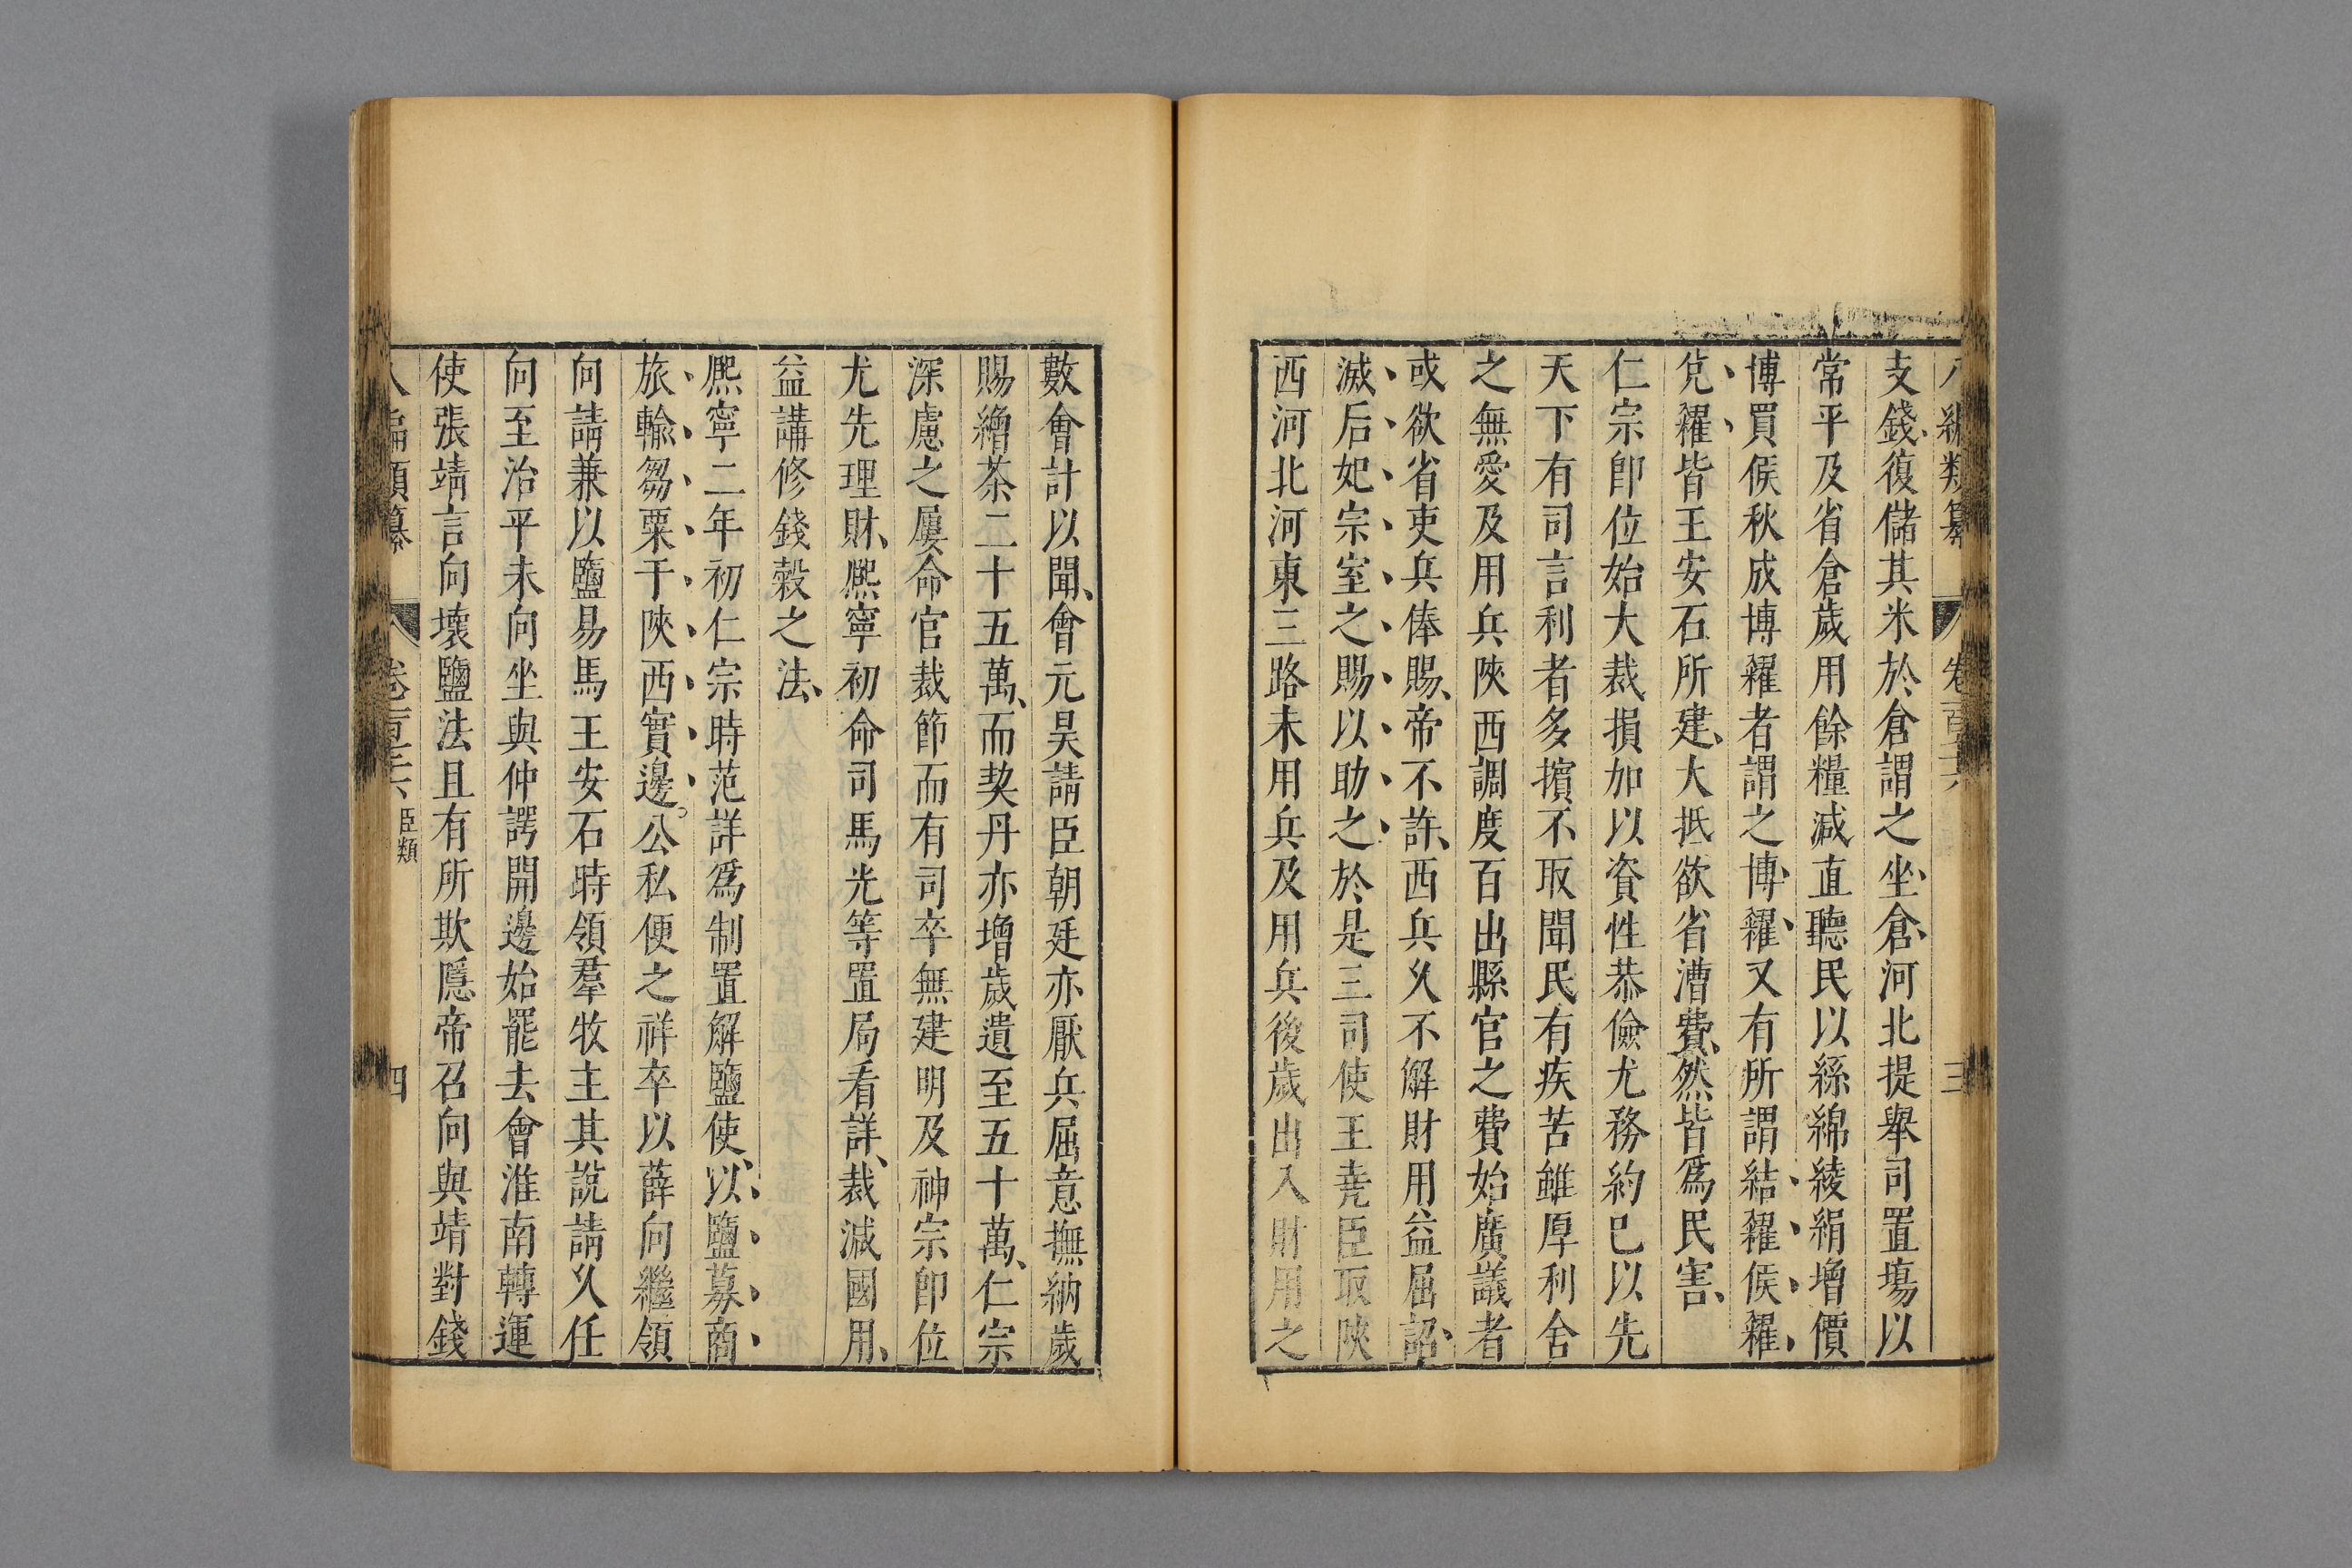 八編類纂 卷百六 三
支錢復儲其米於倉謂之坐倉河北提舉司置塲以
常平及省倉歲用餘糧減直聽民以絲綿綾絹增價
博買俟秋成博糴者謂之博糴又有所謂結糴俟糴
兌糴皆王安石所建大抵欲省漕費然皆爲民害
仁宗卽位始大裁損加以資性恭儉尤務約已以先
天下有司言利者多擯不取聞民有疾苦雖厚利舍
之無愛及用兵陜西調度百出縣官之費始廣議者
或欲省吏兵俸賜帝不許西兵乆不解財用益屈詔
滅后妃宗室之賜以助之於是三司使王堯臣取陜
西河北河東三路未用兵及用兵後歲出入財用之
數會計以聞會元昊請臣朝廷亦厭兵屈意撫納歲
賜繒茶二十五萬而契丹亦增歲遺至五十萬仁宗
深慮之屢命官裁節而有司卒無建明及神宗卽位
尤先理財熈寧初命司馬光等置局看詳裁減國用
益講修錢榖之法
熈寧二年初仁宗時范詳爲制置解鹽使以鹽募商
旅輸芻粟于陜西實邊公私便之祥卒以薛向繼領
向請兼以鹽易馬王安石時領羣牧主其說請乆任
向至治平末向坐與仲諤開邊始罷去會淮南轉運
使張靖言向壞鹽法且有所欺隱帝召向與靖對錢
八編類纂 卷百六 臣類 四